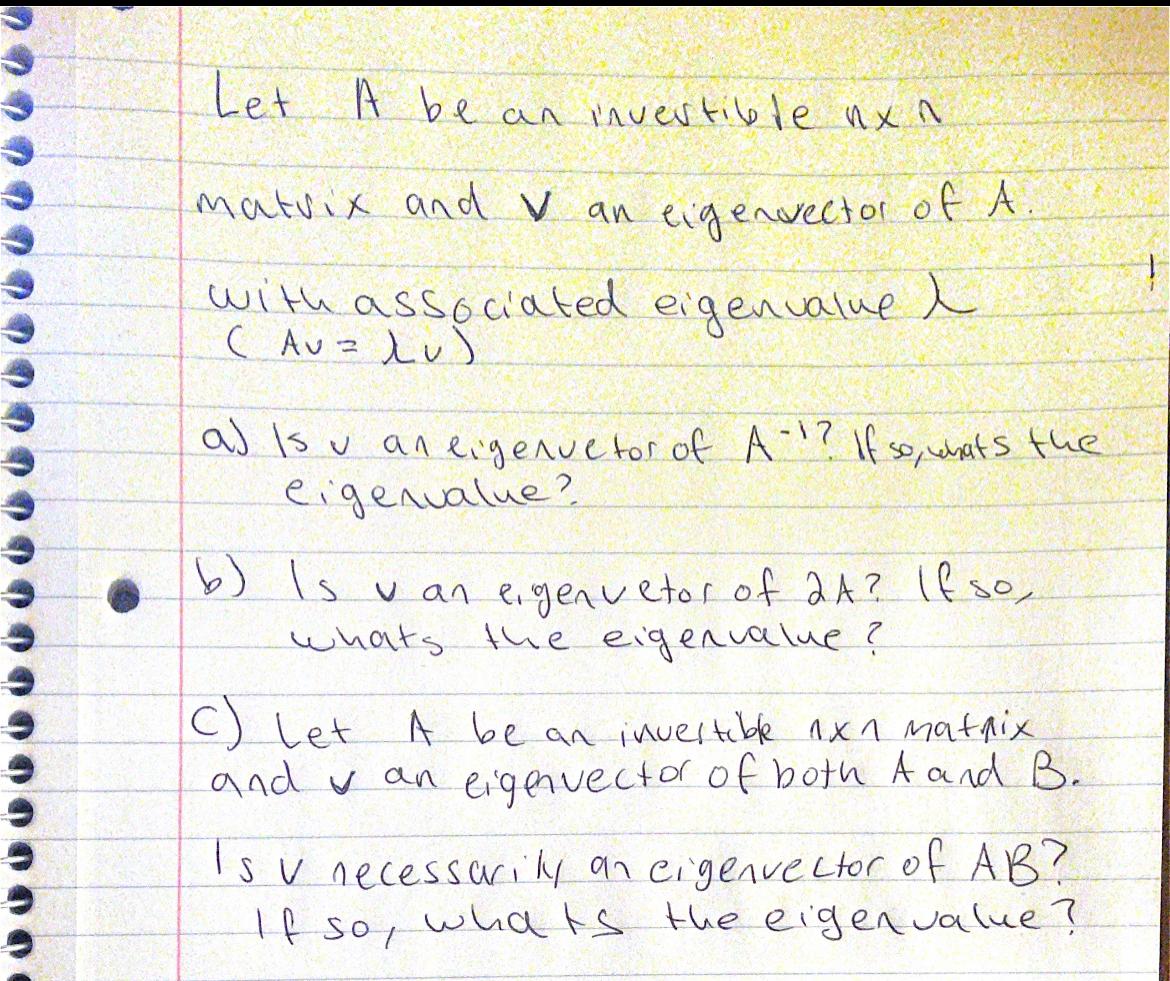 Let A be an invertible nxn
matrix and v an eigenvector of A.
with associated eigenvalue λ
( Av = λv )
a) Is v an eigenvetor of A⁻¹? If so, whats the
eigenvalue?
b) Is v an eigenvetor of 2A? If so,
whats the eigenvalue?
C) Let A be an invertible nxn matrix
and v an eigenvector of both A and B.
Is v necessarily an eigenvector of AB?
If so, whats the eigenvalue?